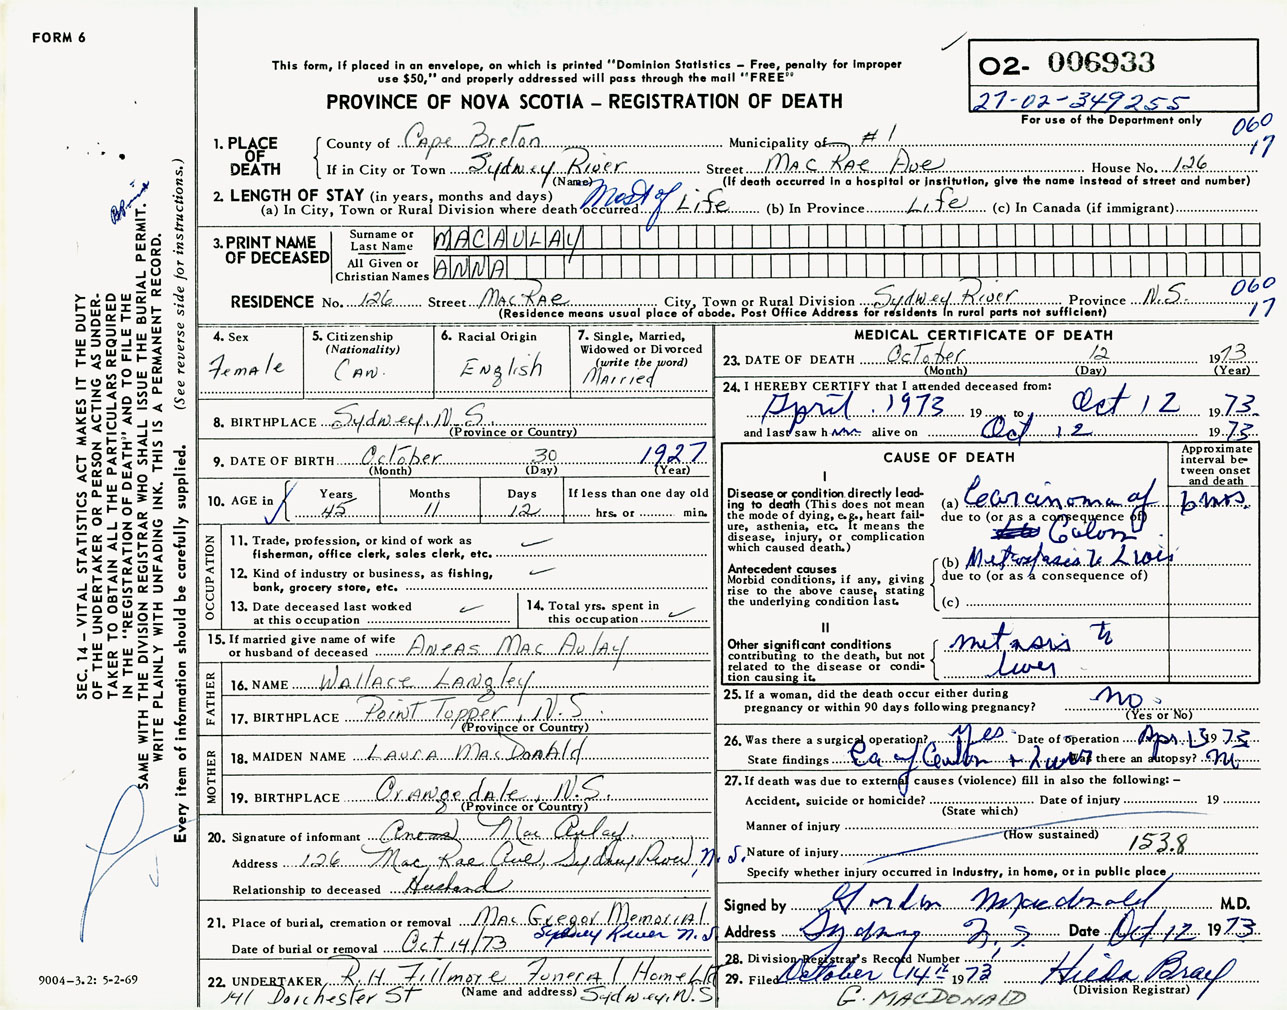 FORM 6
This form, if placed in an envelope, on which is printed "Dominion Statistics – Free, penalty for improper
use $50," and properly addressed will pass through the mail "FREE"
PROVINCE OF NOVA SCOTIA – REGISTRATION OF DEATH
02- 006933
27-02-349255
For use of the Department only
060
17
1. PLACE OF DEATH
County of Cape Breton Municipality of #1
If in City or Town Sydney River Street MacRae Ave House No. 126
(Name) (If death occurred in a hospital or institution, give the name instead of street and number)
2. LENGTH OF STAY (in years, months and days)
(a) In City, Town or Rural Division where death occurred Most of Life (b) In Province Life (c) In Canada (if immigrant)
3. PRINT NAME OF DECEASED
Surname or Last Name MACAULAY
All Given or Christian Names ANNA
RESIDENCE No. 126 Street MacRae City, Town or Rural Division Sydney River Province N.S.
(Residence means usual place of abode. Post Office Address for residents in rural parts not sufficient)
060
17
4. Sex
Female
5. Citizenship
(Nationality)
Can.
6. Racial Origin
English
7. Single, Married,
Widowed or Divorced
(write the word)
Married
8. BIRTHPLACE Sydney, N.S.
(Province or Country)
9. DATE OF BIRTH October 30 1927
(Month) (Day) (Year)
10. AGE in Years Months Days If less than one day old
45 11 12 hrs. or min.
OCCUPATION
11. Trade, profession, or kind of work as
fisherman, office clerk, sales clerk, etc.
12. Kind of industry or business, as fishing,
bank, grocery store, etc.
13. Date deceased last worked
at this occupation
14. Total yrs. spent in
this occupation
15. If married give name of wife
or husband of deceased Aneas MacAulay
FATHER
16. NAME Wallace Langley
17. BIRTHPLACE Point Tupper, N.S.
(Province or Country)
MOTHER
18. MAIDEN NAME Laura MacDonald
19. BIRTHPLACE Orangedale, N.S.
(Province or Country)
20. Signature of informant Aneas MacAulay
Address 126 MacRae Ave, Sydney River, N.S.
Relationship to deceased Husband
21. Place of burial, cremation or removal MacGregor Memorial
Sydney River N.S.
Date of burial or removal Oct 14/73
22. UNDERTAKER R.H. Fillmore Funeral Home Ltd
141 Dorchester St (Name and address) Sydney, N.S
MEDICAL CERTIFICATE OF DEATH
23. DATE OF DEATH October 12 1973
(Month) (Day) (Year)
24. I HEREBY CERTIFY that I attended deceased from:
April. 1973 19 to Oct 12 1973.
and last saw h alive on Oct 12 1973
CAUSE OF DEATH
Approximate
interval be-
tween onset
and death
I
Disease or condition directly lead-
ing to death (This does not mean
the mode of dying, e.g., heart fail-
ure, asthenia, etc. It means the
disease, injury, or complication
which caused death.)
(a) Carcinoma of 6 mos.
due to (or as a consequence of)
Colon
Antecedent causes
Morbid conditions, if any, giving
rise to the above cause, stating
the underlying condition last.
(b) Metastasis to
due to (or as a consequence of)
(c)
II
Other significant conditions
contributing to the death, but not
related to the disease or condi-
tion causing it.
to
liver
25. If a woman, did the death occur either during
pregnancy or within 90 days following pregnancy? no
(Yes or No)
26. Was there a surgical operation? Yes Date of operation Apr 13 1973
State findings Ca of Colon + Liver Was there an autopsy? no
27. If death was due to external causes (violence) fill in also the following: –
Accident, suicide or homicide? Date of injury 19
(State which)
Manner of injury
(How sustained)
Nature of injury 153.8
Specify whether injury occurred in industry, in home, or in public place
Signed by Gordon Macdonald M.D.
Address Sydney N.S Date Oct 12 1973
28. Division Registrar's Record Number
29. Filed October 14th 1973 Hilda Bray
(Division Registrar)
G. MACDONALD
SEC. 14 – VITAL STATISTICS ACT MAKES IT THE DUTY
OF THE UNDERTAKER OR PERSON ACTING AS UNDER-
TAKER TO OBTAIN ALL THE PARTICULARS REQUIRED
IN THE "REGISTRATION OF DEATH" AND TO FILE THE
SAME WITH THE DIVISION REGISTRAR WHO SHALL ISSUE THE BURIAL PERMIT.
WRITE PLAINLY WITH UNFADING INK. THIS IS A PERMANENT RECORD.
Every item of information should be carefully supplied. (See reverse side for instructions.)
9004–3.2: 5-2-69